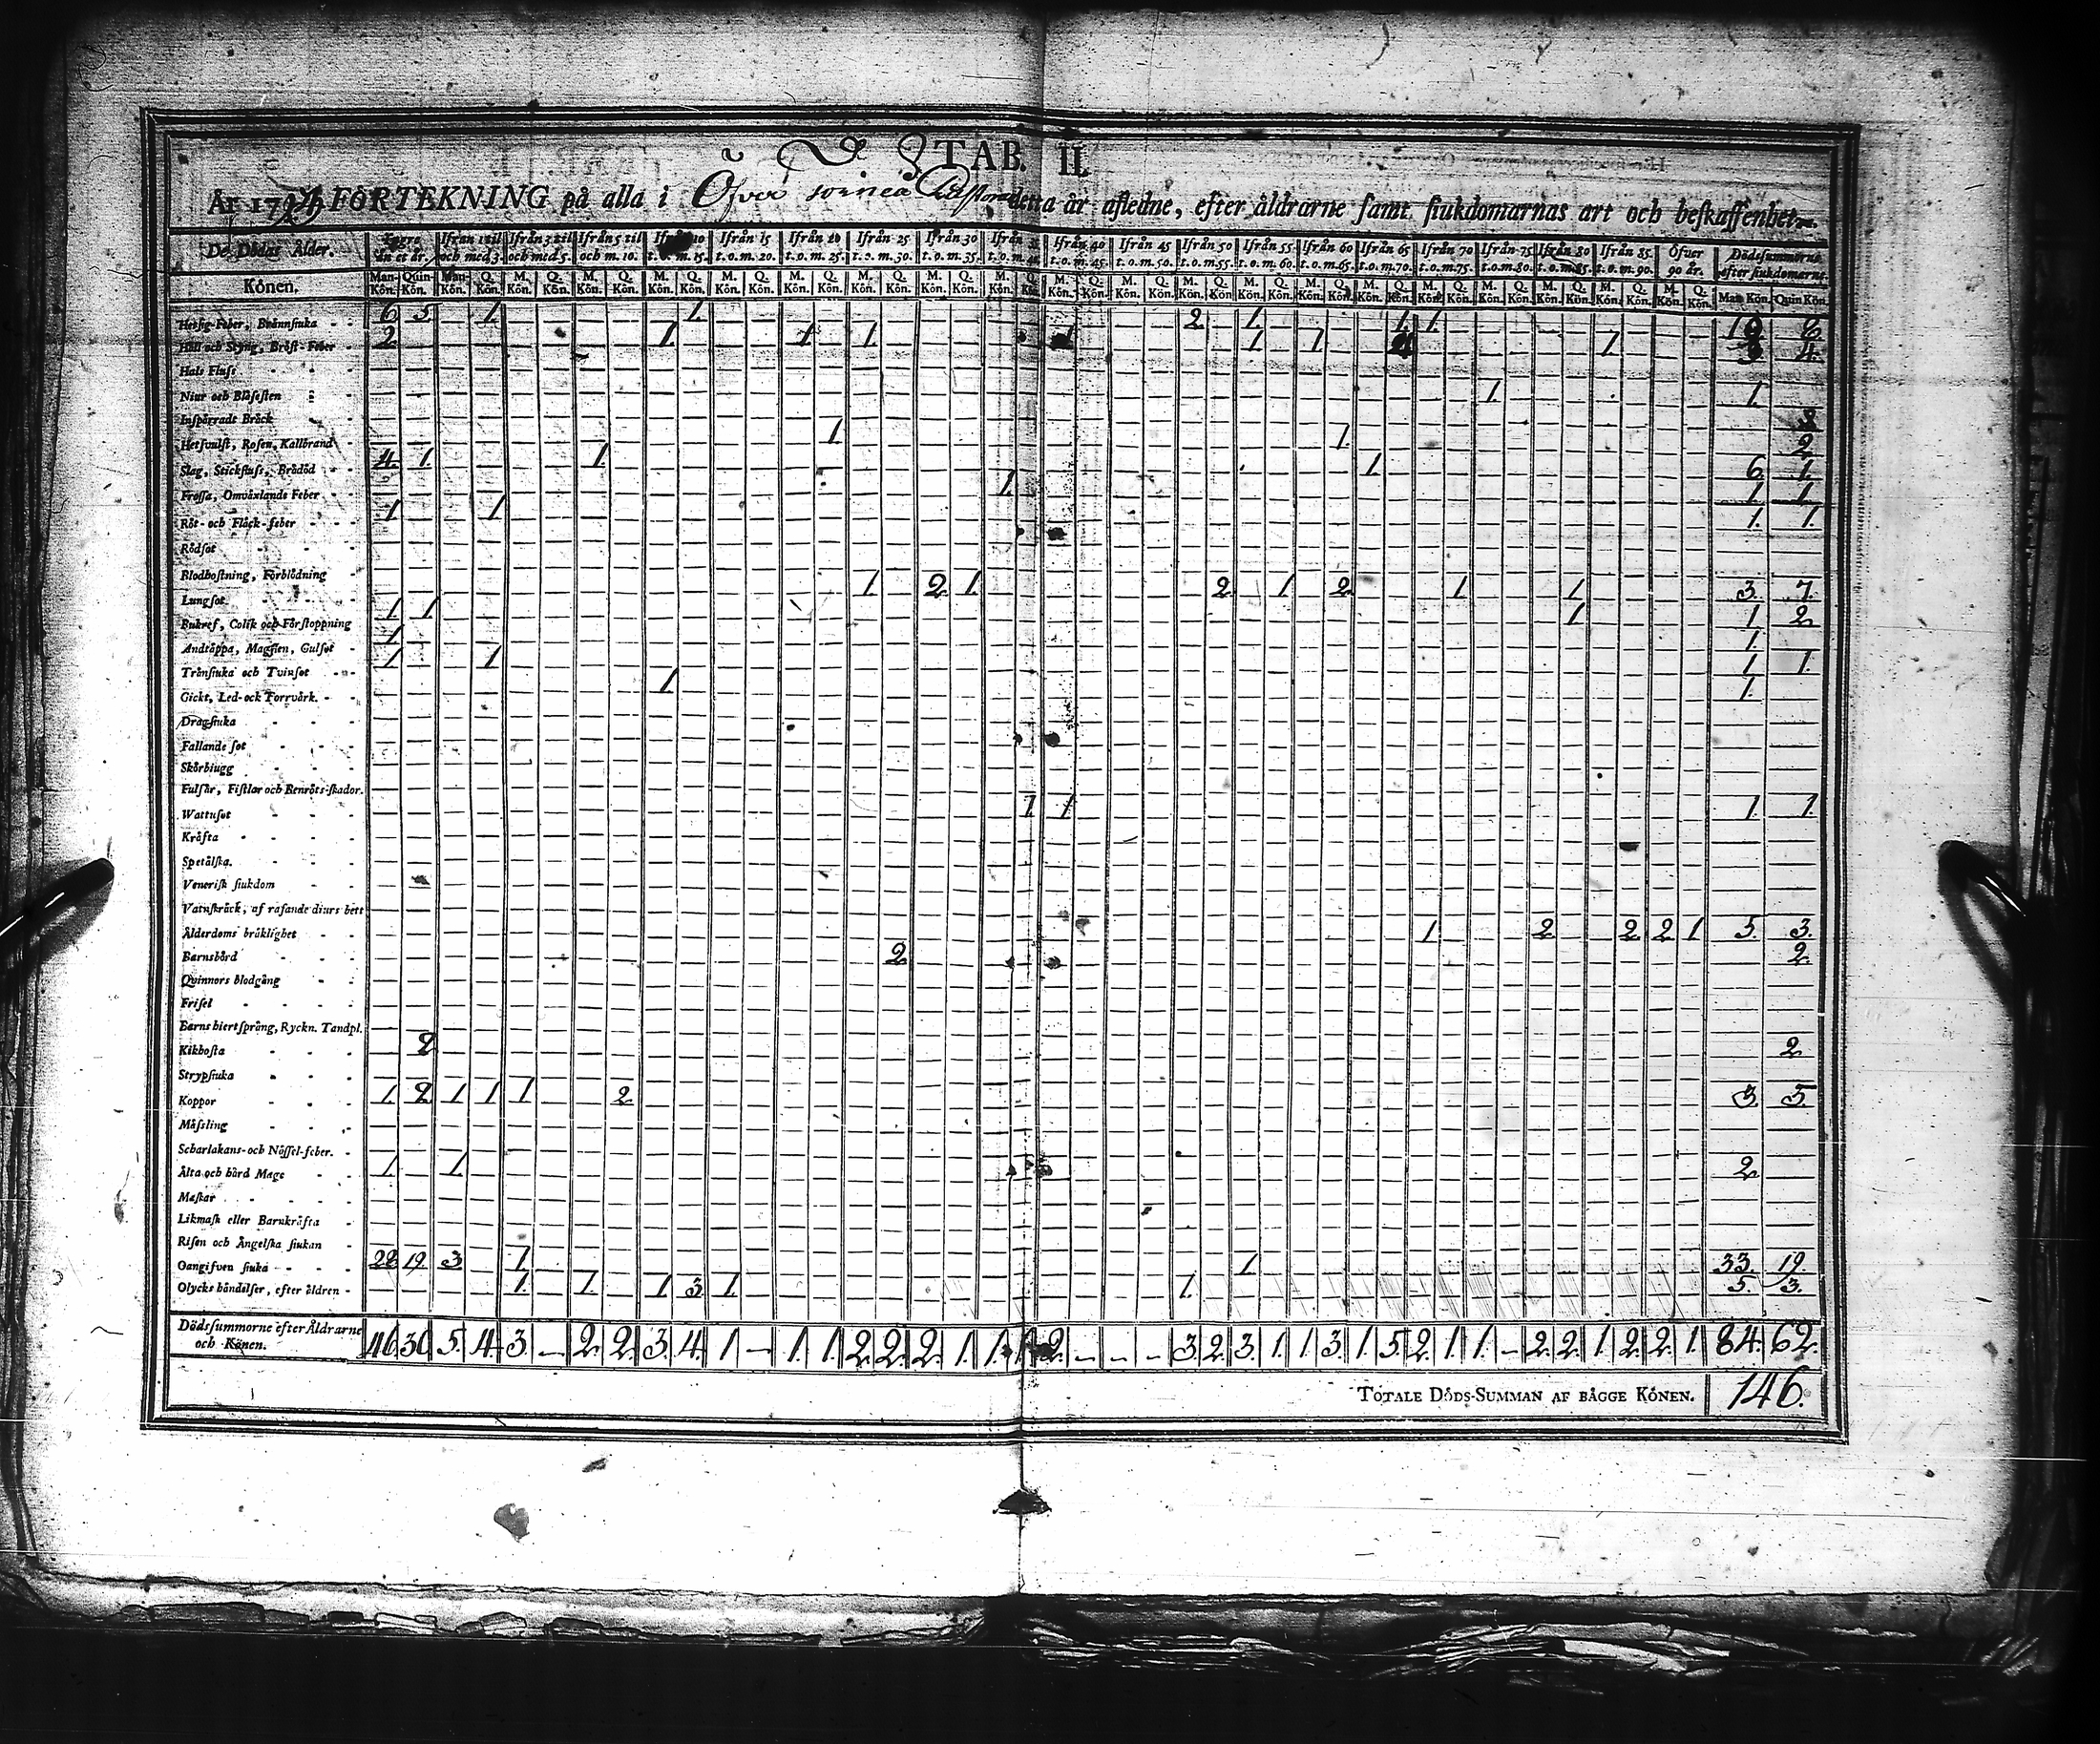 TAB. II.
År 179 FÖRTEKNING på alla i Öfver detta år afledne, efter åldrarne samt siukdomarnas art och beskaffenhet
De Dödas Ålder. Yngre än et år. Ifrån 1 til och med 3. Ifrån 3 til och med 5. Ifrån 5 til och m. 10. Ifrån 10 t. o. m. 15. Ifrån 15 t. o. m. 20. Ifrån 20 t. o. m. 25. Ifrån 25 t. o. m. 30. Ifrån 30 t. o. m. 35. Ifrån 35 t. o. m. 40. Ifrån 40 t. o. m. 45. Ifrån 45 t. o. m. 50. Ifrån 50 t. o. m. 55. Ifrån 55 t. o. m. 60. Ifrån 60 t. o. m. 65. Ifrån 65 t. o. m. 70. Ifrån 70 t. o. m. 75. Ifrån 75 t. o. m. 80. Ifrån 80 t. o. m. 85. Ifrån 85 t. o. m. 90. Öfver 90 år. Dödssummorne efter siukdomarne.
Könen. Man-Kön. Quin-Kön. Man-Kön. Q. Kön. M. Kön. Q. Kön. M. Kön. Q. Kön. M. Kön. Q. Kön. M. Kön. Q. Kön. M. Kön. Q. Kön. M. Kön. Q. Kön. M. Kön. Q. Kön. M. Kön. Q. Kön. M. Kön. Q. Kön. M. Kön. Q. Kön. M. Kön. Q. Kön. M. Kön. Q. Kön. M. Kön. Q. Kön. M. Kön. Q. Kön. M. Kön. Q. Kön. M. Kön. Q. Kön. M. Kön. Q. Kön. M. Kön. Q. Kön. M. Kön. Q. Kön. Man Kön. Quin Kön.
Hetsig-Feber, Brännsiuka 6 5 1 1. 2 1. 1 1. 8.
Håll och Styng, Bröst-Feber 2 1 1 1 1 1 1 4.
Hals Fluss
Niur och Blåsesten 1 1.
Inspärrade Bråck
Hetsvulst, Rosen, Kallbrand 1 1 2
Slag, Stickfluss, Brådöd 4. 1. 1. 1 6 1.
Frossa, Omväxlande Feber 1. 1. 1
Röt- och Fläck-feber 1 1 1. 1.
Rödsot
Blodhostning, Förblödning
Lungsot 1. 2 1. 2 1 2 1 1 3. 7.
Bukref, Colik och Förstoppning 1. 1 1 1 2
Andtäppa, Magsien, Gulsot 1 1.
Trånsiuka och Tvinsot 1 1 1 1.
Gickt, Led-ock Torrvärk. 1 1.
Dragsiuka
Fallande sot
Skörbiugg
Fulsår, Fistlar och Benröts-skador.
Wattusot 1 1 1. 1.
Kräfta
Spetälska.
Venerisk siukdom
Vatnskräck, af rasande diurs bett
Ålderdoms bräklighet 1 2 2 2 1 5. 3.
Barnsbörd 2 2.
Qvinnors blodgång
Frisel
Barns hiertsprång, Ryckn. Tandpl.
Kikhosta 2 2
Strypsiuka
Koppor 1. 2 1 1 1 2 3. 5.
Mässling
Scharlakans- och Nässel-feber.
Älta och hård Mage 1. 1 2
Maskar
Likmask eller Barnkräfta
Risen och Ängelska siukan
Oangifven siuka 28 19 3 1. 1 33. 19.
Olycks händelser, efter äldren 1. 1. 1 3 1. 1. 5. 3.
Dödssummorne efter Åldrarne och Könen. 46 36 5. 4. 3. – 2. 2. 3. 4. 1 – 1. 1. 2. 2. 2. 1. 1. 2. – – – 3. 2. 3. 1. 1. 3. 1. 5. 2. 1 1. – 2. 2. 1. 2. 2. 1. 84. 62.
TOTALE DÖDS-SUMMAN AF BÄGGE KÖNEN. 146.